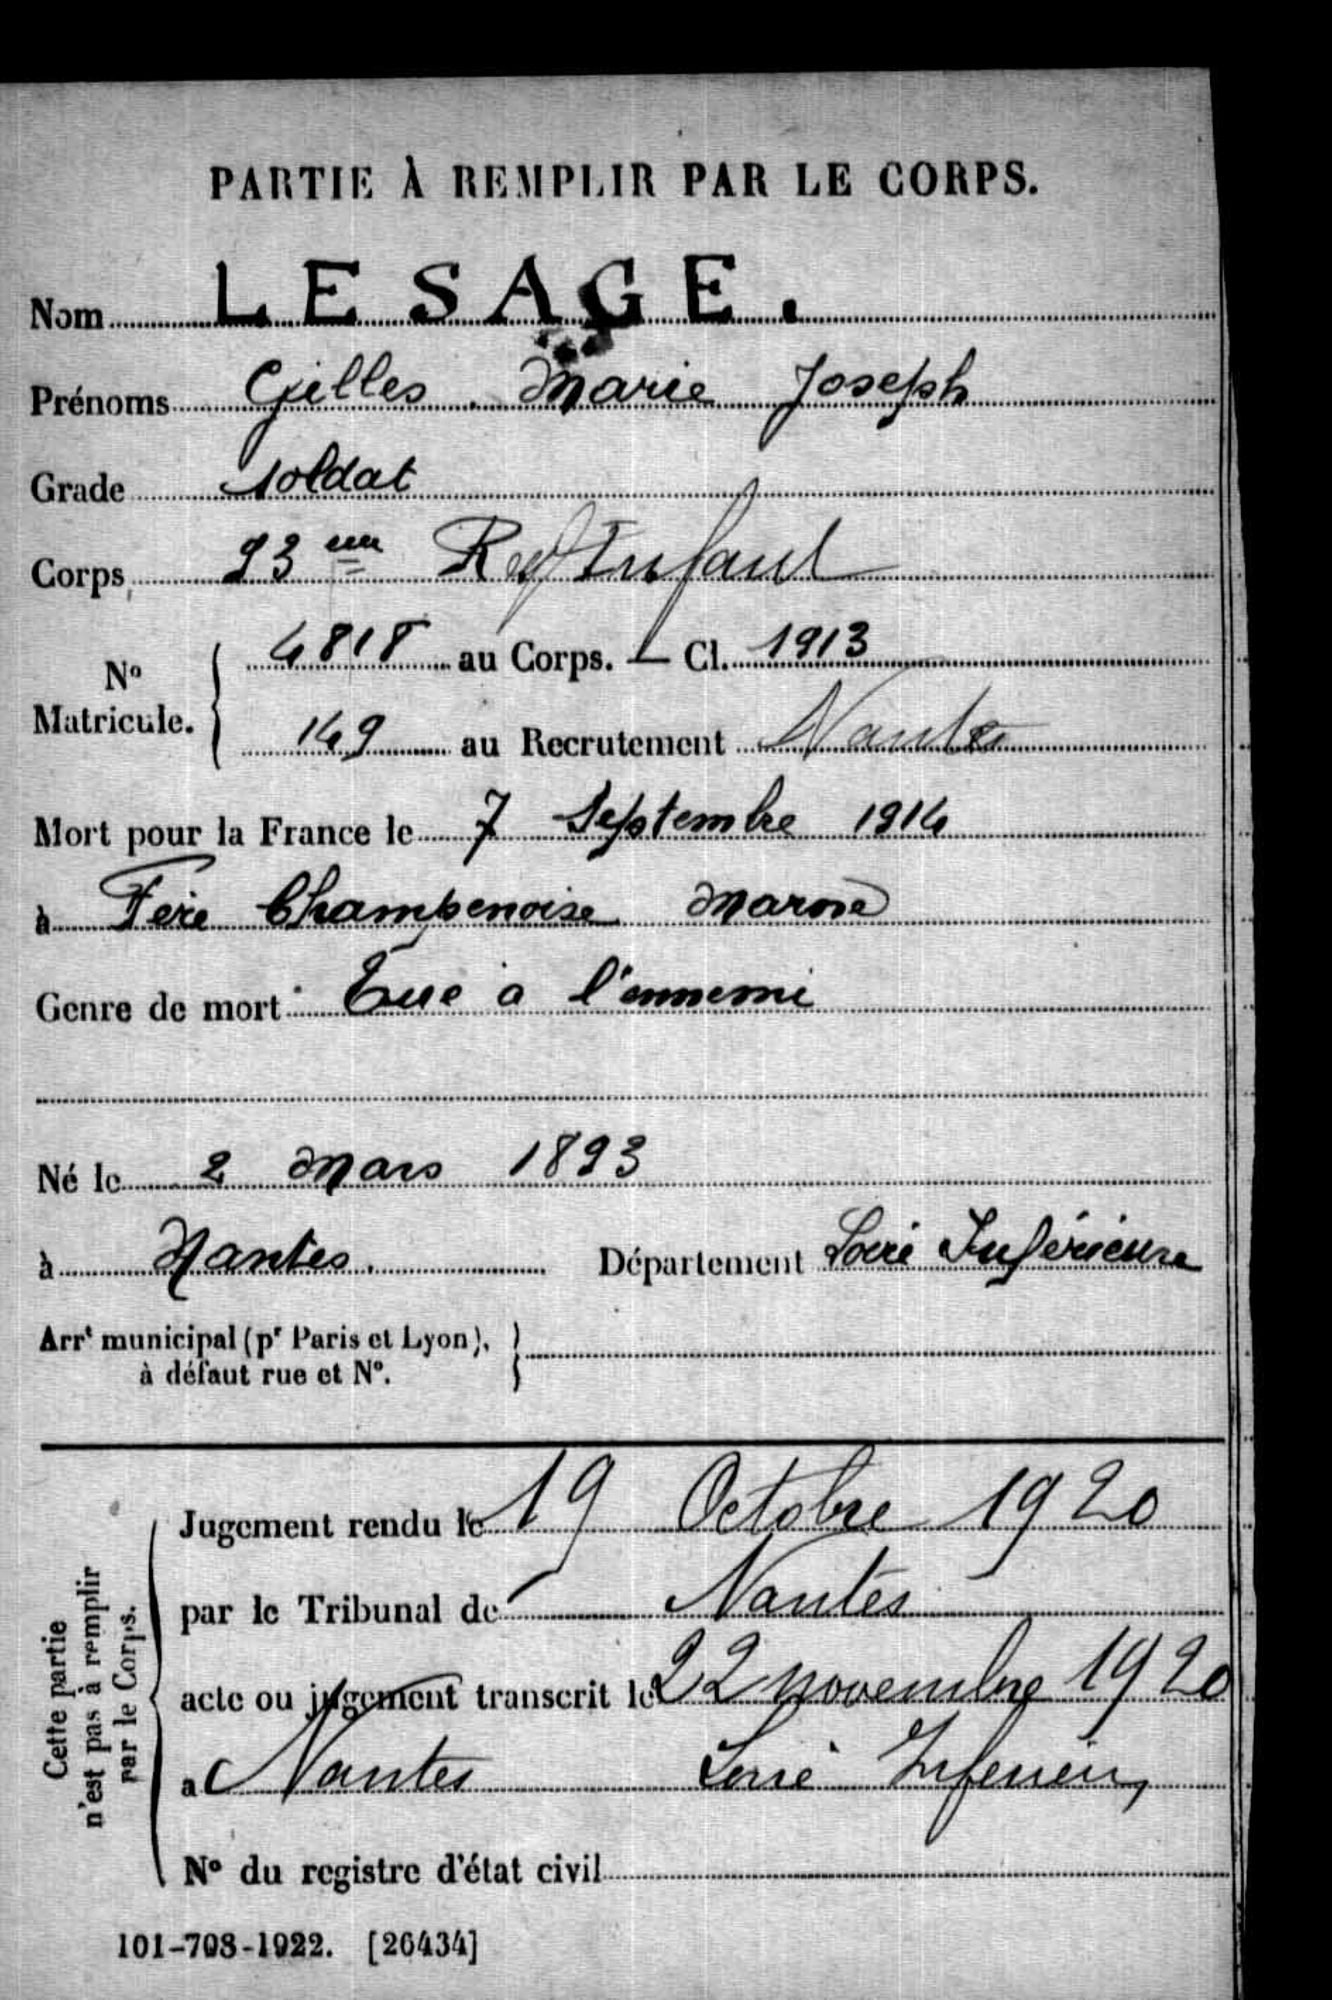 PARTIE À REMPLIR PAR LE CORPS.
Nom LESAGE.
Prénoms Gilles Marie Joseph
Grade Soldat
Corps 93 eme Regt Infant
No Matricule. 4818 au Corps. — Cl. 1913
149 au Recrutement Nantes
Mort pour la France le 7 Septembre 1914
à Fère Champenoise Marne
Genre de mort Tué à l'ennemi
Né le 2 Mars 1893
à Nantes. Département Loire Inférieure
Arrt municipal (pr Paris et Lyon),
à défaut rue et No.
Cette partie
n'est pas à remplir
par le Corps.
Jugement rendu le 19 Octobre 1920
par le Tribunal de Nantes
acte ou jugement transcrit le 22 novembre 1920
à Nantes Loire Inferieure
No du registre d'état civil
101-708-1922. [26434]